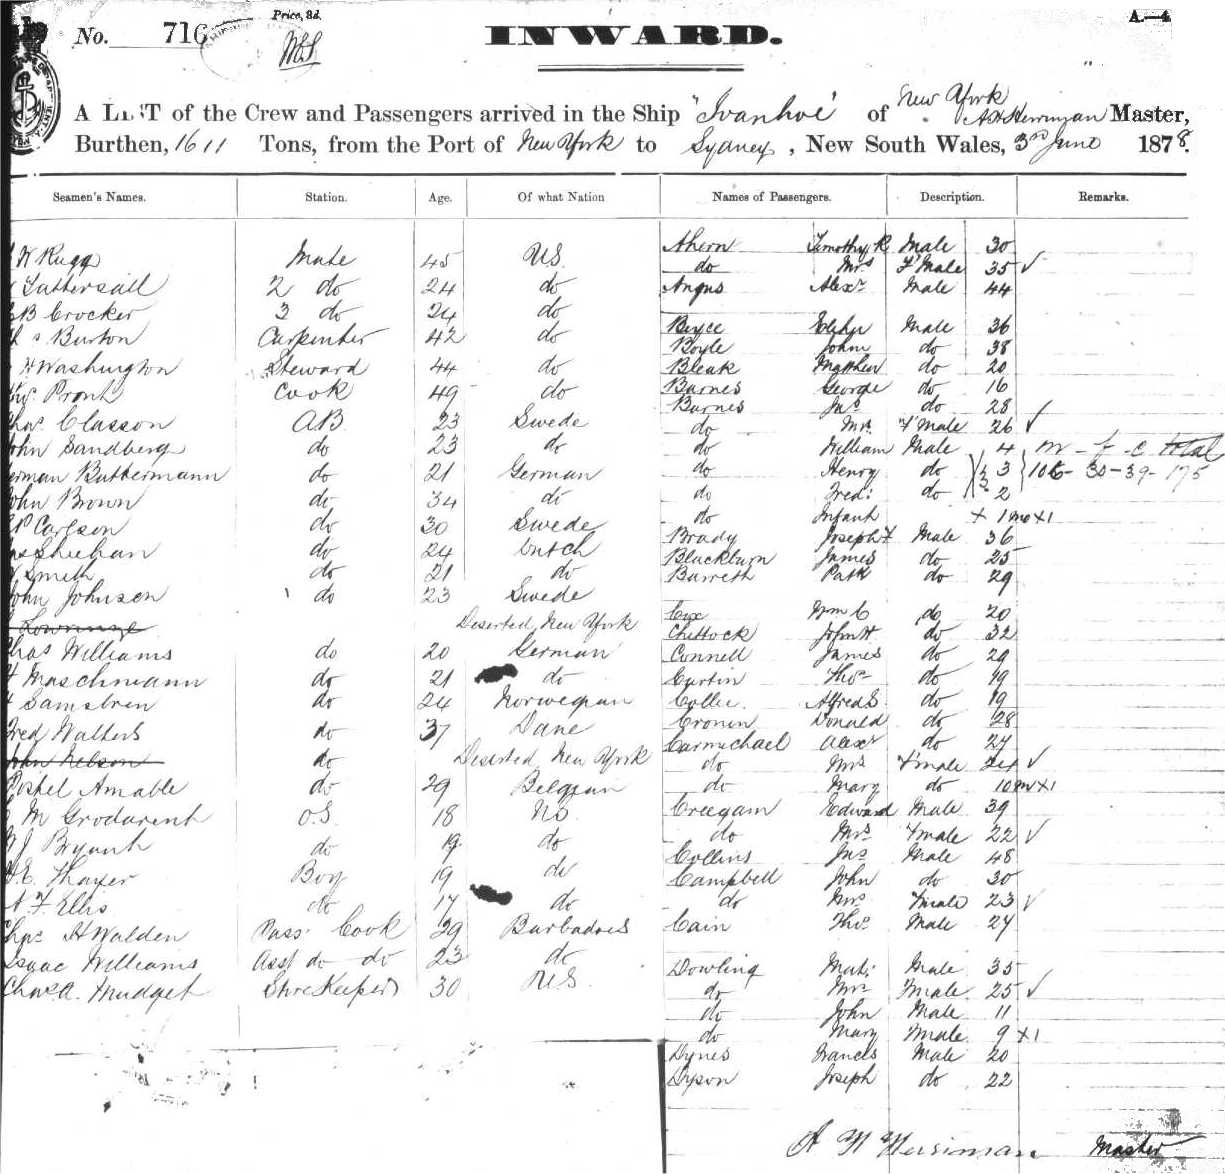 No. 716 Price, 3d. INWARD. A.—4
A LIST of the Crew and Passengers arrived in the Ship "Ivanhoe" of New York Master,
Burthen, 1611 Tons, from the Port of New York to Sydney, New South Wales, 3rd June 1878.
Seamen's Names. Station. Age. Of what Nation Names of Passengers. Description. Remarks.
Ahern Timothy R Male 30
W Rugg Mate 45 US
do Mrs F'Male 35 ✓
Tattersall 2 do 24 do
Angus Alexr Male 44
B Crocker 3 do 24 do
Burton Carpenter 42 do
Boyce Male 36
Boyle John do 38
Washington Steward 44 do
Bleak Matthew do 20
Pronk Cook 49 do
Barnes George do 16
Barnes Jas do 28
Classon AB 23 Swede
do Mrs F'Male 26 ✓
John Sandberg do 23 do
do William Male 4 m - f - c total
Herman Buttermann do 21 German
do Henry do 3 106 - 30 - 39 - 175
do Fred: do 2
John Brown do 34 do
do Infant + 1 mo x1
Carlson do 30 Swede
Brady Joseph F Male 36
Sheehan do 24 Dutch
Blackburn James do 25
Smith do 21 do
Barrett Patk do 29
John Johnson do 23 Swede
Cox Wm C do 20
Deserted, New York
Chittock John H do 32
Chas Williams do 20 German
Connell James do 29
Maschmann do 21 do
Curtin Thos do 19
do 24 Norwegian
Collie Alfred S do 19
Fred Walters do 37 Dane
Cronin Donald do 28
Carmichael Alexr do 27
John Nelson do Deserted, New York
do Mrs F'male 24 ✓
Amable do 29 Belgian
do Mary do 10 m x1
Creegam Edward Male 39
M Grodarent O.S. 18 US
do Mrs F'male 22 ✓
J Bryant do 19 do
Collins Jas Male 48
E. Thayer Boy 19 do
Campbell John do 30
F. Ellis do 17 do
do Mrs F'male 23 ✓
Cain Thos Male 27
Chas H Walden Pass Cook 29 Barbadoes
Isaac Williams Asst do do 23 do
Dowling Mat: Male 35
Chas A. Mudget StoreKeeper 30 US
do Mrs F'male 25 ✓
do John Male 11
do Mary F'male 9 x1
Dynes Francis Male 20
Dyson Joseph do 22
Merriman Master